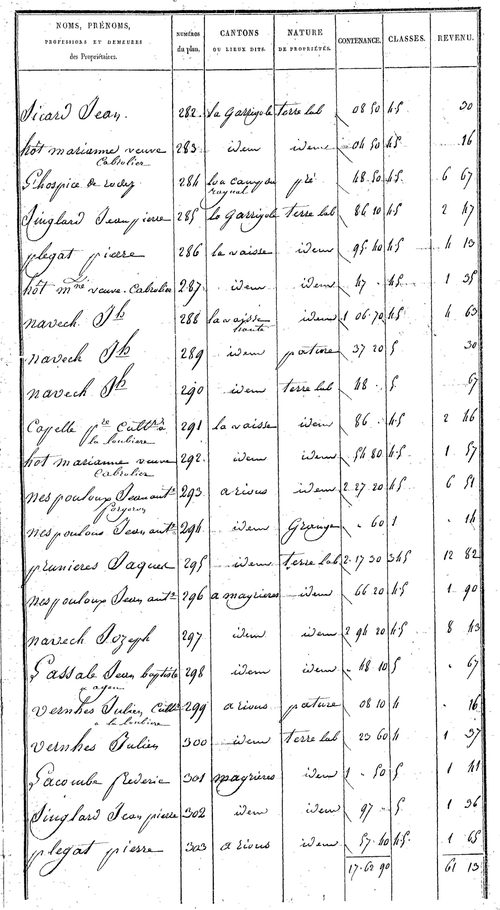 NOMS, PRÉNOMS, PROFESSIONS ET DEMEURES des Propriétaires. | NUMÉROS du plan. | CANTONS OU LIEUX DITS. | NATURE DE PROPRIÉTÉS. | CONTENANCE. | CLASSES. | REVENU.
Sicard Jean. 282. la Garrigole terre lab 08 50 45 30
hot marianne veuve 283 idem idem 04 50 45 16
Cabrolier
L'hospice de rodez 284 pré 48 50 45 6 67
Singlard Jean pierre 285 la Garrigole terre lab 86 10 45 2 47
plegat pierre 286 la vaisse idem 95 40 45 4 13
hot mne veuve Cabrolier 287 idem idem 47 45 1 35
navech Jh 288 la vaisse idem 1 06 70 45 4 63
haute
navech Jh 289 idem pature 37 20 5 30
navech Jh 290 idem terre lab 48 5 67
Capelle pre Cultr à 291 la vaisse idem 86 45 2 46
la loubiere
hot marianne veuve 292 idem idem 54 80 45 1 57
Cabrolier
nespouloux Jean ante 293 a rious idem 2 27 20 45 6 51
forgeron
nespoulous Jean ante 294 idem Grange 60 1 14
prunieres Jaques 295 idem terre lab 2 17 30 345 12 82
nespouloux Jean ante 296 a mayrieres idem 66 20 45 1 90
navech Jozeph 297 idem idem 2 94 20 45 8 43
Lassale Jean baptiste 298 idem idem 48 10 5 67
a agen
vernhes Julien Cultr 299 a rious pature 08 10 4 16
a la loubiere
vernhes Julien 300 idem terre lab 23 60 4 1 37
Lacombe frederic 301 mayrieres idem 1 50 5 1 41
Singlard Jean pierre 302 idem idem 97 5 1 36
plegat pierre 303 a rious idem 57 40 45 1 65
17 62 90 61 13